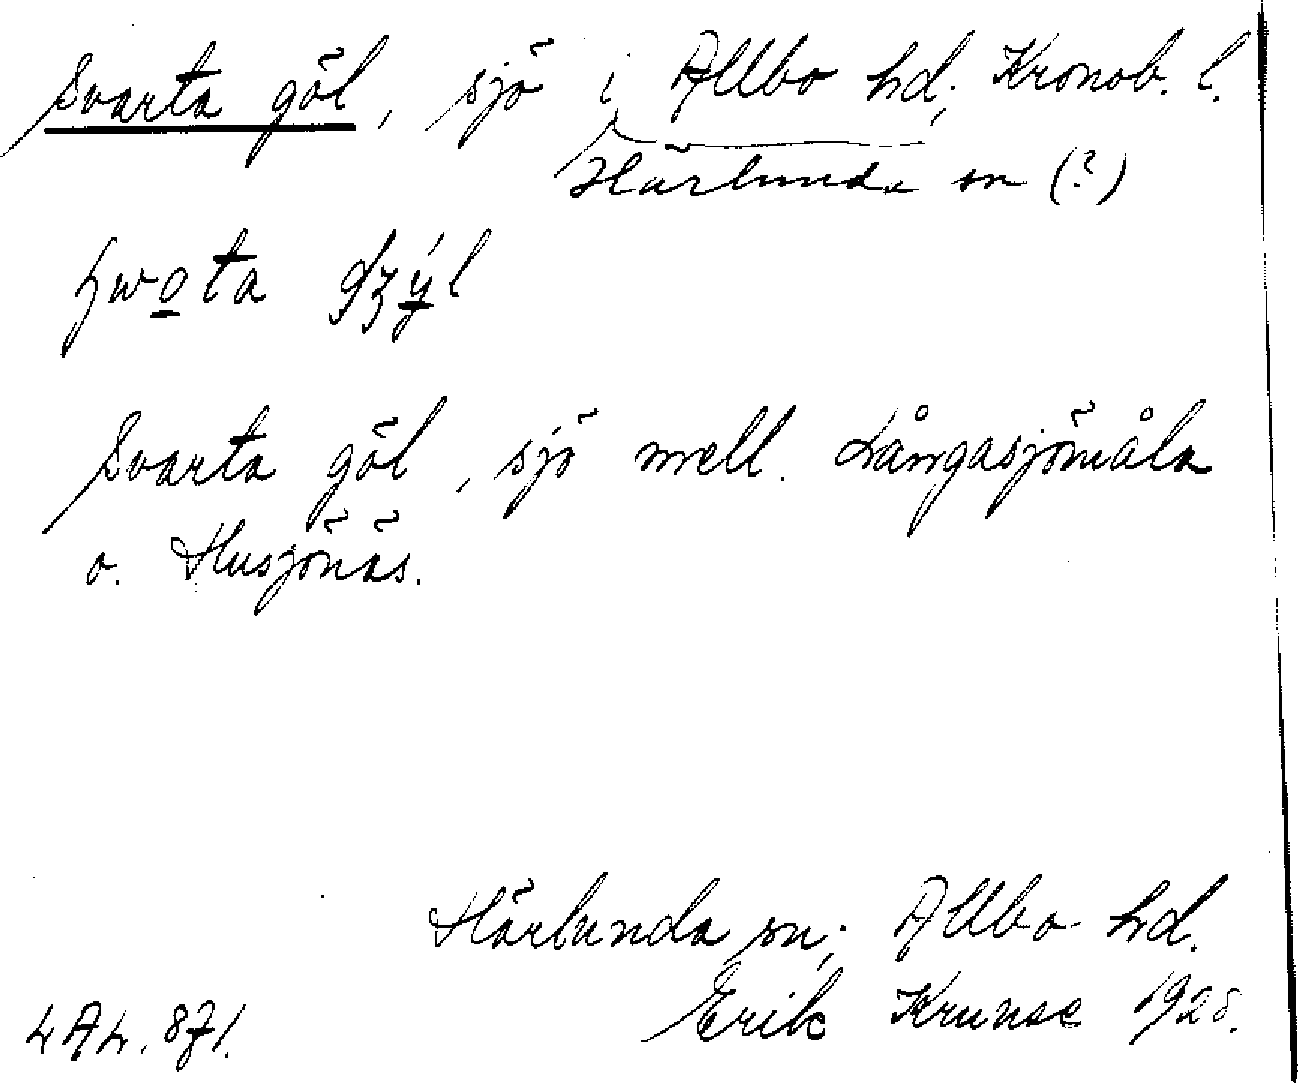 Svarta göl, sjö i Allbo hd; Kronob. l.
Härlunda sn (?)
Svarta göl, sjö mell. Långasjömåla
o. Husjönäs.
Härlunda sn; Allbo hd.
Erik Krunse 1928.
LAL. 871.